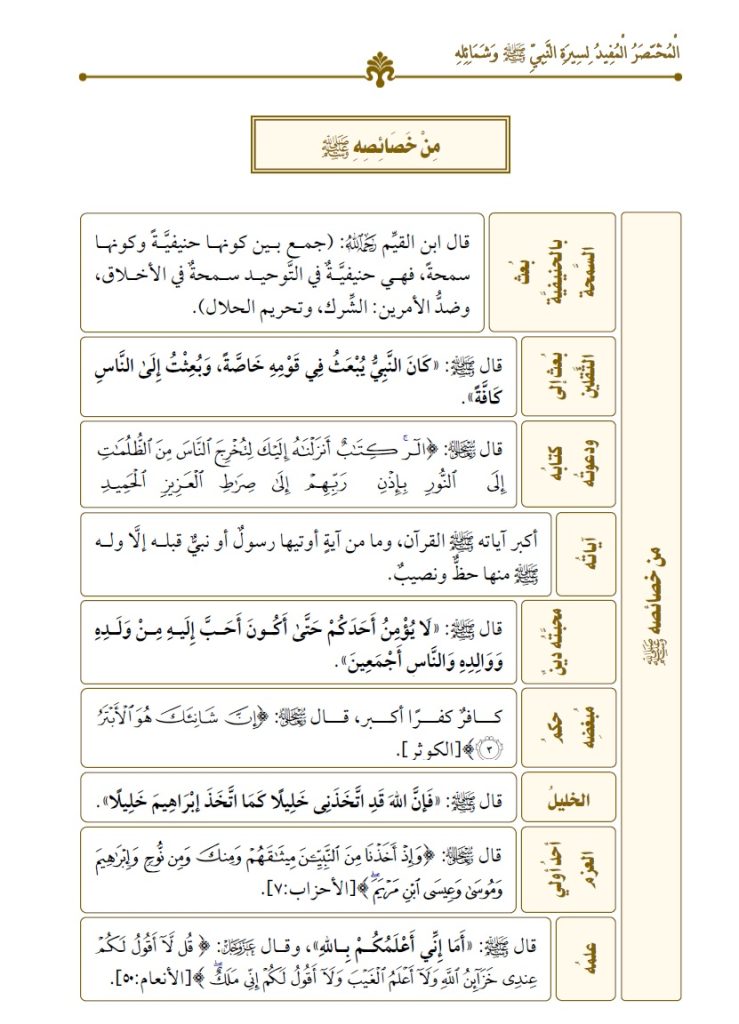 الْمُخْتَصَرُ الْمُفِيدُ لِسِيرَةِ النَّبِيِّ ﷺ وَشَمَائِلِهِ
مِنْ خَصَائِصِهِ ﷺ
من خصائصه ﷺ
بُعث
بالحنيفيَّة
السَّمحة
قال ابن القيِّم رَحِمَهُ ٱللَّهُ: (جمـع بـين كونهـا حنيفيَّـةً وكونهـا
سمحةً، فهـي حنيفيَّـةٌ في التَّوحيـد سـمحةٌ في الأخـلاق،
وضدُّ الأمرين: الشِّرك، وتحريم الحلال).
بُعث إلى
الثَّقلين
قال ﷺ: «كَانَ النَّبِيُّ يُبْعَثُ فِي قَوْمِهِ خَاصَّةً، وَبُعِثْتُ إِلَىٰ النَّاسِ
كَافَّةً».
كتابُه
ودعوتُه
قال ﷻ: ﴿الٓرۚ كِتَٰبٌ أَنزَلْنَٰهُ إِلَيْكَ لِتُخْرِجَ ٱلنَّاسَ مِنَ ٱلظُّلُمَٰتِ
إِلَى ٱلنُّورِ بِإِذْنِ رَبِّهِمْ إِلَىٰ صِرَٰطِ ٱلْعَزِيزِ ٱلْحَمِيدِ
آياتُه
أكبر آياته ﷺ القرآن، وما من آيةٍ أوتيها رسولٌ أو نبيٌّ قبلـه إلَّا ولـه
ﷺ منها حظٌّ ونصيبٌ.
محبَّتُه دينٌ
قال ﷺ: «لَا يُؤْمِنُ أَحَدُكُمْ حَتَّىٰ أَكُـونَ أَحَـبَّ إِلَيـهِ مِـنْ وَلَـدِهِ
وَوَالِدِهِ وَالنَّاسِ أَجْمَعِينَ».
حكمُ
مُبغضِه
كـافرٌ كفـرًا أكـبر، قـال ﷻ: ﴿إِنَّ شَانِئَكَ هُوَ ٱلْأَبْتَرُ
٣﴾[الكوثر].
الخليلُ
قال ﷺ: «فَإِنَّ اللهَ قَدِ اتَّخَذَنِي خَلِيلًا كَمَا اتَّخَذَ إِبْرَاهِيمَ خَلِيلًا».
أحدُ أولي
العزم
قال ﷻ: ﴿وَإِذْ أَخَذْنَا مِنَ ٱلنَّبِيِّۦنَ مِيثَٰقَهُمْ وَمِنكَ وَمِن نُّوحٍ وَإِبْرَٰهِيمَ
وَمُوسَىٰ وَعِيسَى ٱبْنِ مَرْيَمَۖ﴾[الأحزاب:٧].
علمُه
قال ﷺ: «أَمَا إِنِّي أَعْلَمُكُـمْ بِـاللهِ»، وقـال عَزَّوَجَلَّ: ﴿قُل لَّآ أَقُولُ لَكُمْ
عِندِى خَزَآئِنُ ٱللَّهِ وَلَآ أَعْلَمُ ٱلْغَيْبَ وَلَآ أَقُولُ لَكُمْ إِنِّى مَلَكٌۖ﴾[الأنعام:٥٠].